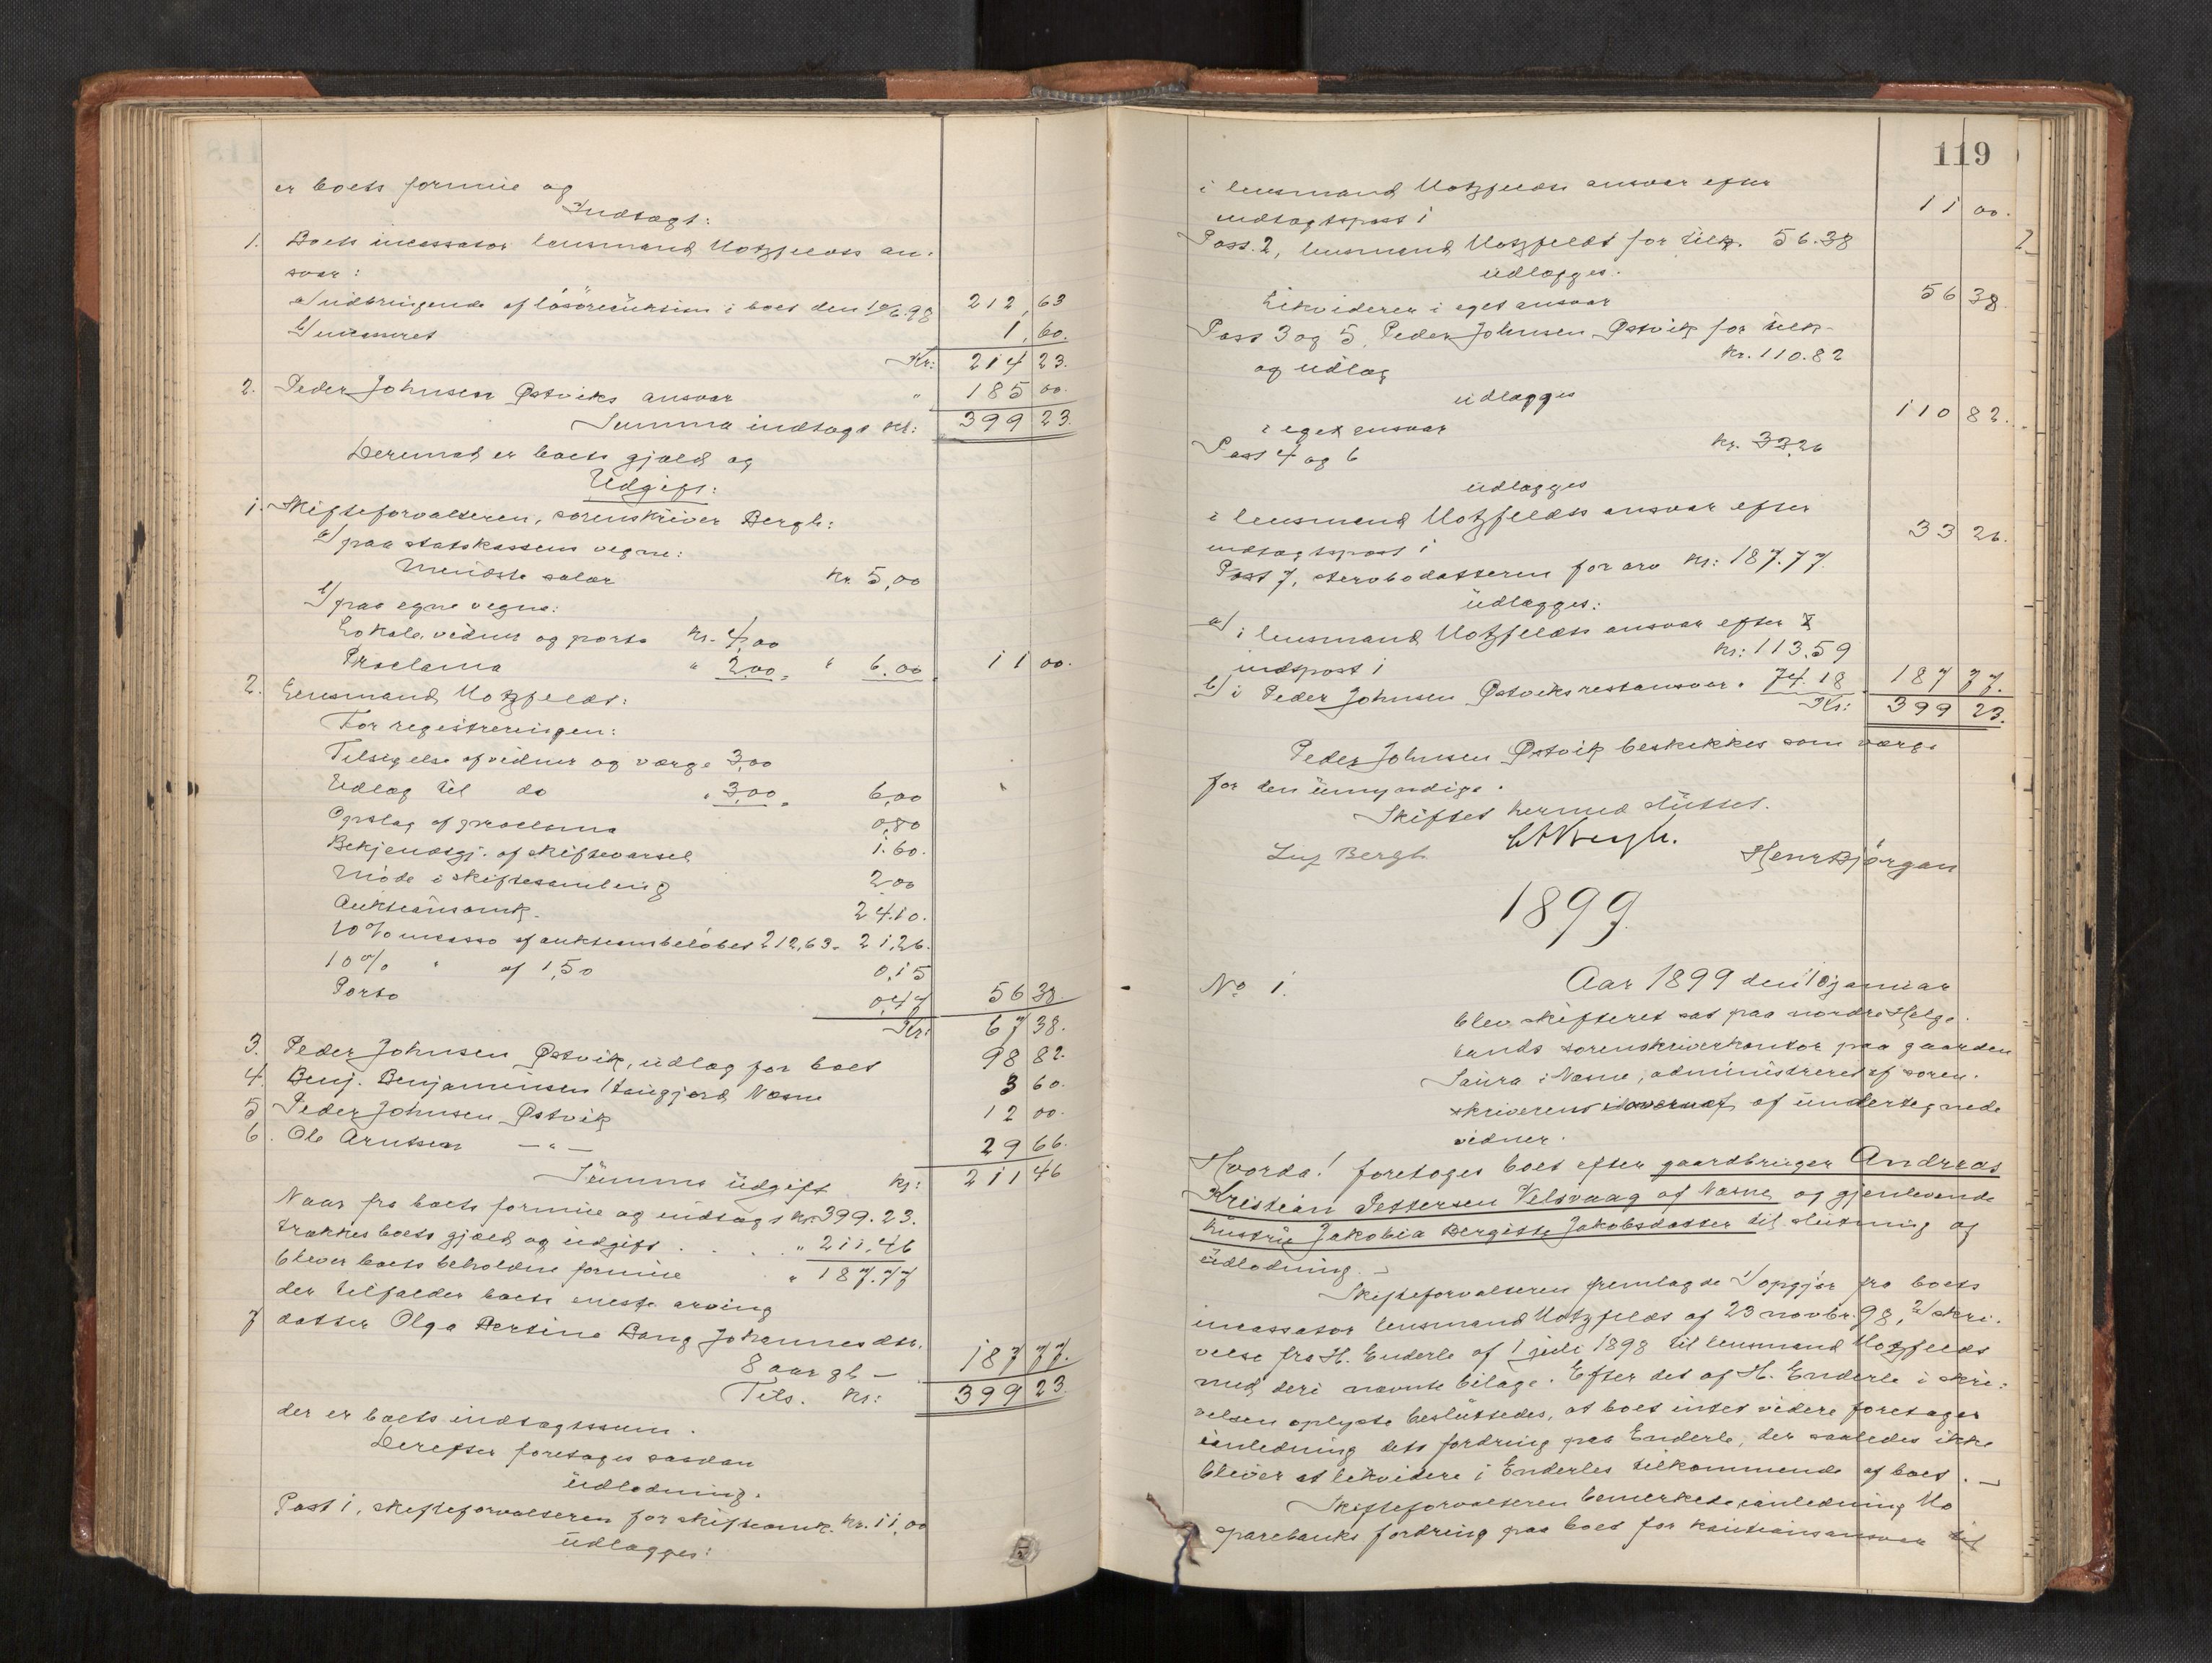 er boets formue og
Indtægt:
1. Boets incassator lensmand Motzfeldts an-
svar:
a) udbringende af løsøreauktion i boet den 10/6 98 212,63
b) incasseret 1,60.
Kr: 214 23.
2. Peder Johnsen Østviks ansvar " 185 00.
Summa indtægt kr: 399 23.
Derimod er boets gjæld og
Udgift:
1. Skifteforvalteren, sorenskriver Bergh:
a) paa statskassens vegne:
Mindste salær kr 5,00
b) paa egne vegne:
Lokale, vidner og porto kr. 4,00
Proclama " 2,00 " 6.00 11 00.
2. Lensmand Motzfeldt:
For registreringen:
Tilsigelse af vidner og værge 3,00
Udlæg til do " 3,00 6,00
Opslag af proclama 0,80
Bekjendtgj. af skiftevarsel 1.60.
Møde i skiftesamling 2,00
Auktionsomk. 24.10.
10% incasso af auktionsbeløbet 212,63 21,26.
10% " af 1,50 0,15
Porto 0,47 56 38.
Kr: 67 38.
3. Peder Johnsen Østvik, udlæg for boet 98 82.
4. Benj. Benjaminsen Næsne 3 60.
5 Peder Johnsen Østvik 12 00.
6. Ole Arntsen —"— 29 66.
Summa udgift kr: 211 46
Naar fra boets formue og indtægt kr. 399.23.
trækkes boets gjæld og udgift . . . " 211,46
bliver boets beholdne formue " 187.77
der tilfalder boets eneste arving
7 datter Olga Bertine Bang Johannesdtr.
8 aar gl — 187 77.
Tils. kr: 399 23.
der er boets indtægtssum.
Derefter foretages saadan
udlodning:
Post 1, skifteforvalteren for skifteomk. kr. 11,00
udlægges:
118
119
i lensmand Motzfeldts ansvar efter
indtægtspost 1 11 00.
Post. 2, lensmand Motzfeldt for tilk. 56.38
udlægges:
Likviderer i eget ansvar 56 38.
Post 3 og 5, Peder Johnsen Østvik for tilk.
og udlæg kr. 110.82
udlægges
i eget ansvar 110 82.
Post 4 og 6 kr. 33,26
udlægges
i lensmand Motzfeldts ansvar efter
indtægtspost 1 33 26.
Post 7, stervbodatteren for arv kr: 187.77.
udlægges:
a) i lensmand Motzfeldts ansvar efter
indtpost 1 kr: 113.59
b) i Peder Johnsen Østviks restansvar " 74.18 187 77.
Kr: 399 23.
Peder Johnsen Østvik beskikkes som værge
for den umyndige.
Skiftet hermed sluttet.
Bergh.
Bergh Henr Bjørgan
1899.
No 1. Aar 1899 den 10 januar
blev skifteret sat paa nordre Helge-
lands sorenskriverkontor paa gaarden
Saura i Næsne, administreret af soren-
skriveren i overvær af undertegnede
vidner.
Hvorda! foretoges boet efter gaardbruger Andreas
Kristian Pettersen Velsvaag af Næsne og gjenlevende
hustru Jakobia Bergitte Jakobsdatter til slutning og
udlodning. —
Skifteforvalteren fremlagde 1) opgjør fra boets
incassator lensmand Motzfeldt af 23 novbr. 98, 2) skri-
velse fra H. Enderle af 1 juli 1898 til lensmand Motzfeldt
med deri nævnte bilage. Efter det af H. Enderle i skri-
velsen oplyste besluttedes, at boet intet videre foretager
ianledning dets fordring paa Enderle, der saaledes ikke
bliver at likvidere i Enderles tilkommende af boet. —
Skifteforvalteren bemerkede ianledning Mo
sparebanks fordring paa boet for kautionsansvar til